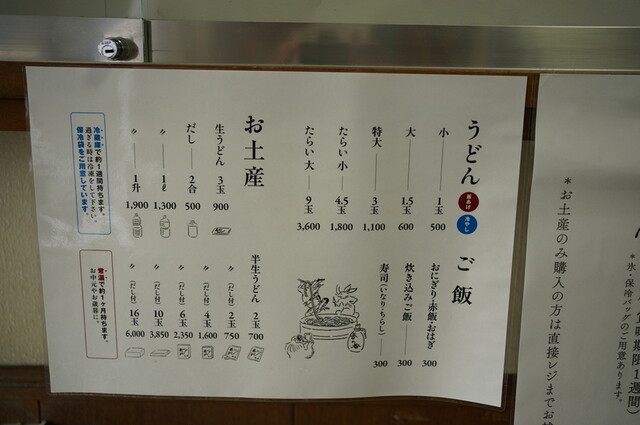 うどん 釜あげ 冷やし
小 1玉 500
大 1.5玉 600
特大 3玉 1,100
たらい 小 4.5玉 1,800
たらい 大 9玉 3,600
ご飯
おにぎり・赤飯・おはぎ 300
炊き込みご飯 300
寿司(いなり・ちらし) 300
お土産
生うどん 3玉 900
だし 2合 500
〃 1ℓ 1,300
〃 1升 1,900
冷蔵庫で約1週間持ちます。
過ぎる時は冷凍をして下さい。
保冷袋をご用意しています。
半生うどん 2玉 700
〃(だし付) 2玉 750
〃(だし付) 4玉 1,600
〃(だし付) 6玉 2,350
〃(だし付) 10玉 3,850
〃(だし付) 16玉 6,000
常温で約1ヶ月持ちます。
お中元やお歳暮に。
期限1週間)
*氷・保冷バッグのご用意あります。
*お土産のみ購入の方は直接レジまでお